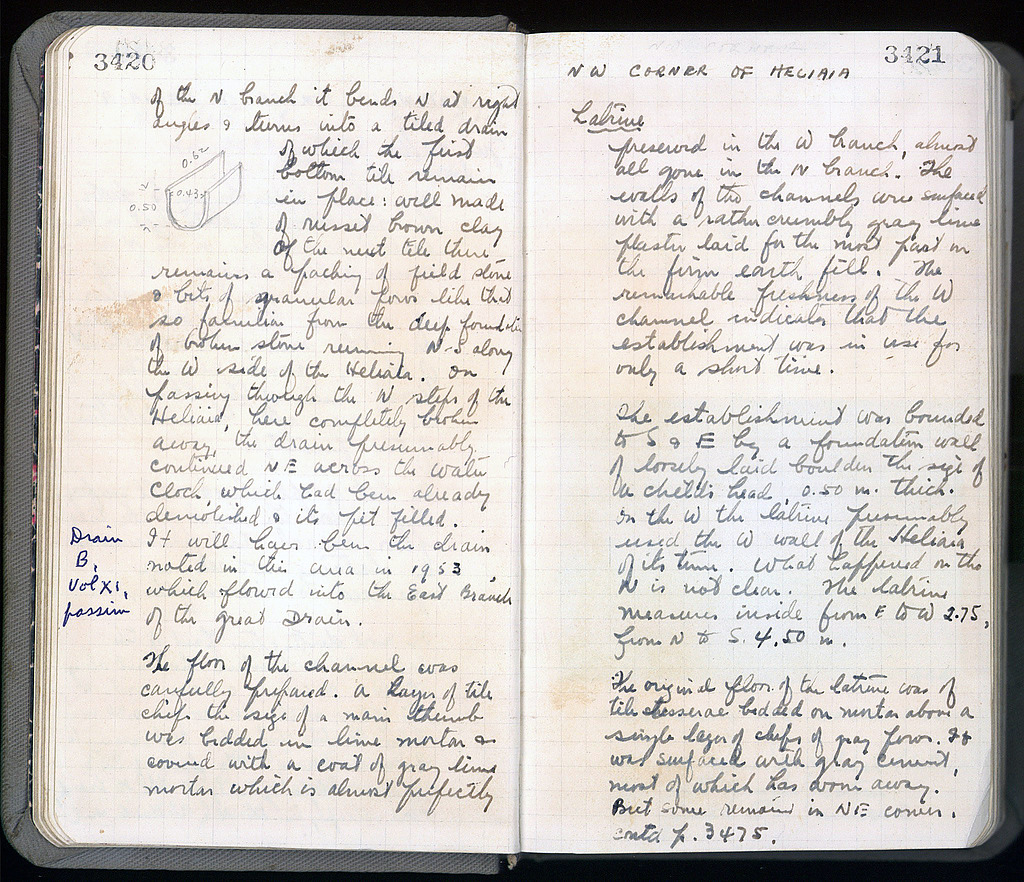 3420
of the N branch it bends N at right
angles & turns into a tiled drain
of which the first
bottom tile remain
in place: well made
of russet brown clay
Of the next tile there
0.62
0.43
0.50
remains a packing of field stone
& bits of granular poros like that
so familiar from the deep foundation
of broken stone running N-S along
the W side of the Heliaia. On
passing through the N steps of the
Heliaia, here completely broken
away, the drain presumably
continued NE across the water
clock which had been already
demolished & its pit filled.
It will have been the drain
noted in this area in 1953,
which flowed into the East Branch
of the Great Drain.
Drain
B,
Vol XI,
passim
The floor of the channel was
carefully prepared. A layer of tile
chips the size of a man's thumb
was bedded in lime mortar &
covered with a coat of gray lime
mortar which is almost perfectly
3421
NW CORNER OF HELIAIA
Latrine
preserved in the W branch, almost
all gone in the N branch. The
walls of the channels were surfaced
with a rather crumbly gray lime
plaster laid for the most part on
the firm earth fill. The
remarkable freshness of the W
channel indicates that the
establishment was in use for
only a short time.
The establishment was bounded
to S & E by a foundation wall
of loosely laid boulders the size of
a child's head, 0.50 m. thick.
On the W the latrine presumably
used the W wall of the Heliaia
of its time. What happened on the
N is not clear. The latrine
measures inside from E to W 2.75,
from N to S. 4.50 m.
The original floor of the latrine was of
tile tesserae bedded on mortar above a
single layer of chips of gray poros. It
was surfaced with gray cement,
most of which has worn away.
But some remains in NE corner.
contd p. 3475.